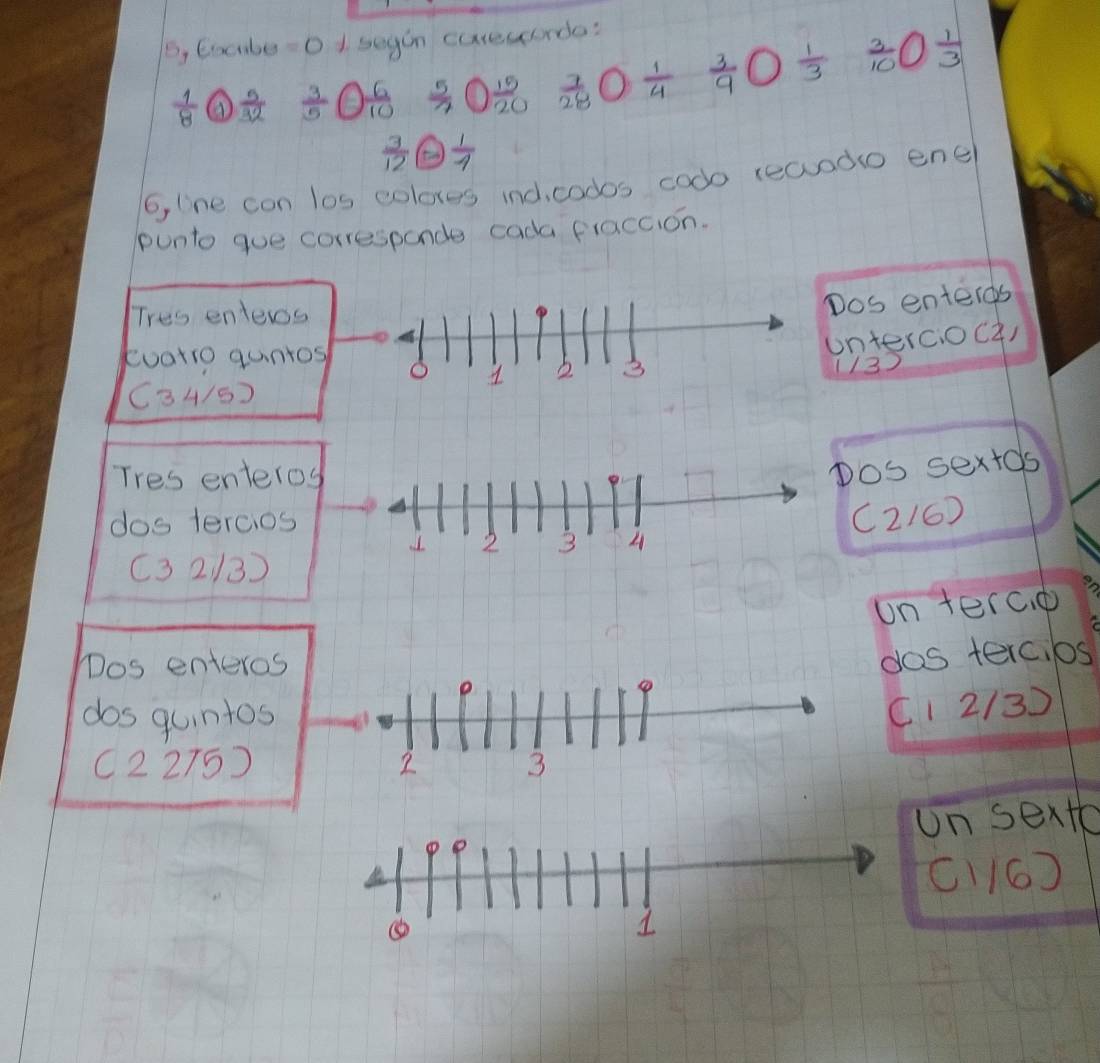 5, Escribe = O ≠ según corresponda:
1/8 ≠ 5/32 3/5 = 6/10 5/7 O 15/20 7/28 O 1/4 3/9 O 1/3 3/10 O 1/3
3/12 = 1/7
6, Une con los colores indicados cada recuadro en el
punto que corresponde cada fracción.
Tres enteros
cuatro quintos
(3 4/5)
0 1 2 3
Dos enteros
un tercio (2,
1/3)
Tres enteros
dos tercios
(3 2/3)
1 2 3 4
Dos sextos
(2/6)
Un tercio
dos tercios
(1 2/3)
Dos enteros
dos quintos
(2 2/5)
2 3
Un sexto
(1/6)
0 1